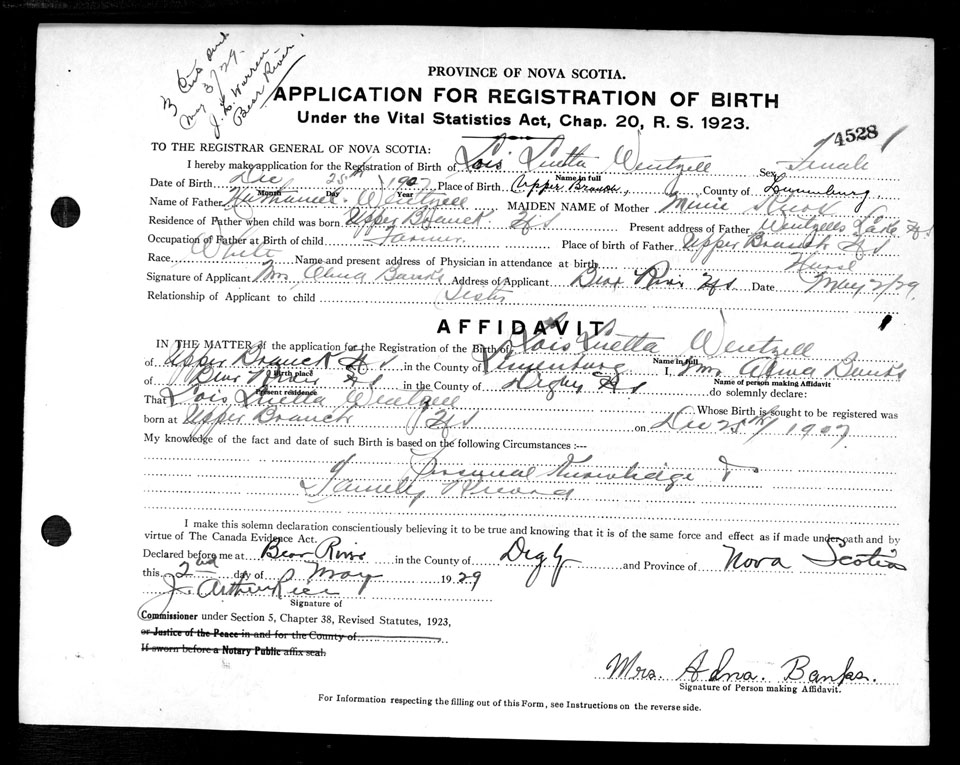 May 3/29
J. L. Warren
Bear River
PROVINCE OF NOVA SCOTIA.
APPLICATION FOR REGISTRATION OF BIRTH
Under the Vital Statistics Act, Chap. 20, R. S. 1923.
4528
TO THE REGISTRAR GENERAL OF NOVA SCOTIA:
I hereby make application for the Registration of Birth of Lois Luetta Wentzell Sex Female
Name in full
Date of Birth Dec 25th 1907 Place of Birth Upper Branch, County of Lunenburg,
Month Day Year
Name of Father Nathaniel Wentzell MAIDEN NAME of Mother Minie
Residence of Father when child was born Upper Branch NS Present address of Father Wentzells Lake NS
Occupation of Father at Birth of child Farmer. Place of birth of Father Upper Branch NS
Race White Name and present address of Physician in attendance at birth Nurse
Signature of Applicant Mrs Banks Address of Applicant Bear River NS Date May 2/29.
Relationship of Applicant to child Sister
AFFIDAVIT
IN THE MATTER of the application for the Registration of the Birth of Lois Luetta Wentzell
Name in full
of Upper Branch NS in the County of Lunenburg I, Mrs Banks
Birth place Name of person making Affidavit
of Bear River NS in the County of Digby NS do solemnly declare:
Present residence
That Lois Luetta Wentzell Whose Birth is sought to be registered was
born at Upper Branch NS on Dec 25th 1907
My knowledge of the fact and date of such Birth is based on the following Circumstances :---
Personal Knowledge &
Family Record
I make this solemn declaration conscientiously believing it to be true and knowing that it is of the same force and effect as if made under oath and by
virtue of The Canada Evidence Act.
Declared before me at Bear River in the County of Digby and Province of Nova Scotia
this 2nd day of May 1929
J. Arthur Rice
Signature of
Commissioner under Section 5, Chapter 38, Revised Statutes, 1923,
or Justice of the Peace in and for the County of
If sworn before a Notary Public affix seal.
Mrs. Adna. Banks.
Signature of Person making Affidavit.
For Information respecting the filling out of this Form, see Instructions on the reverse side.